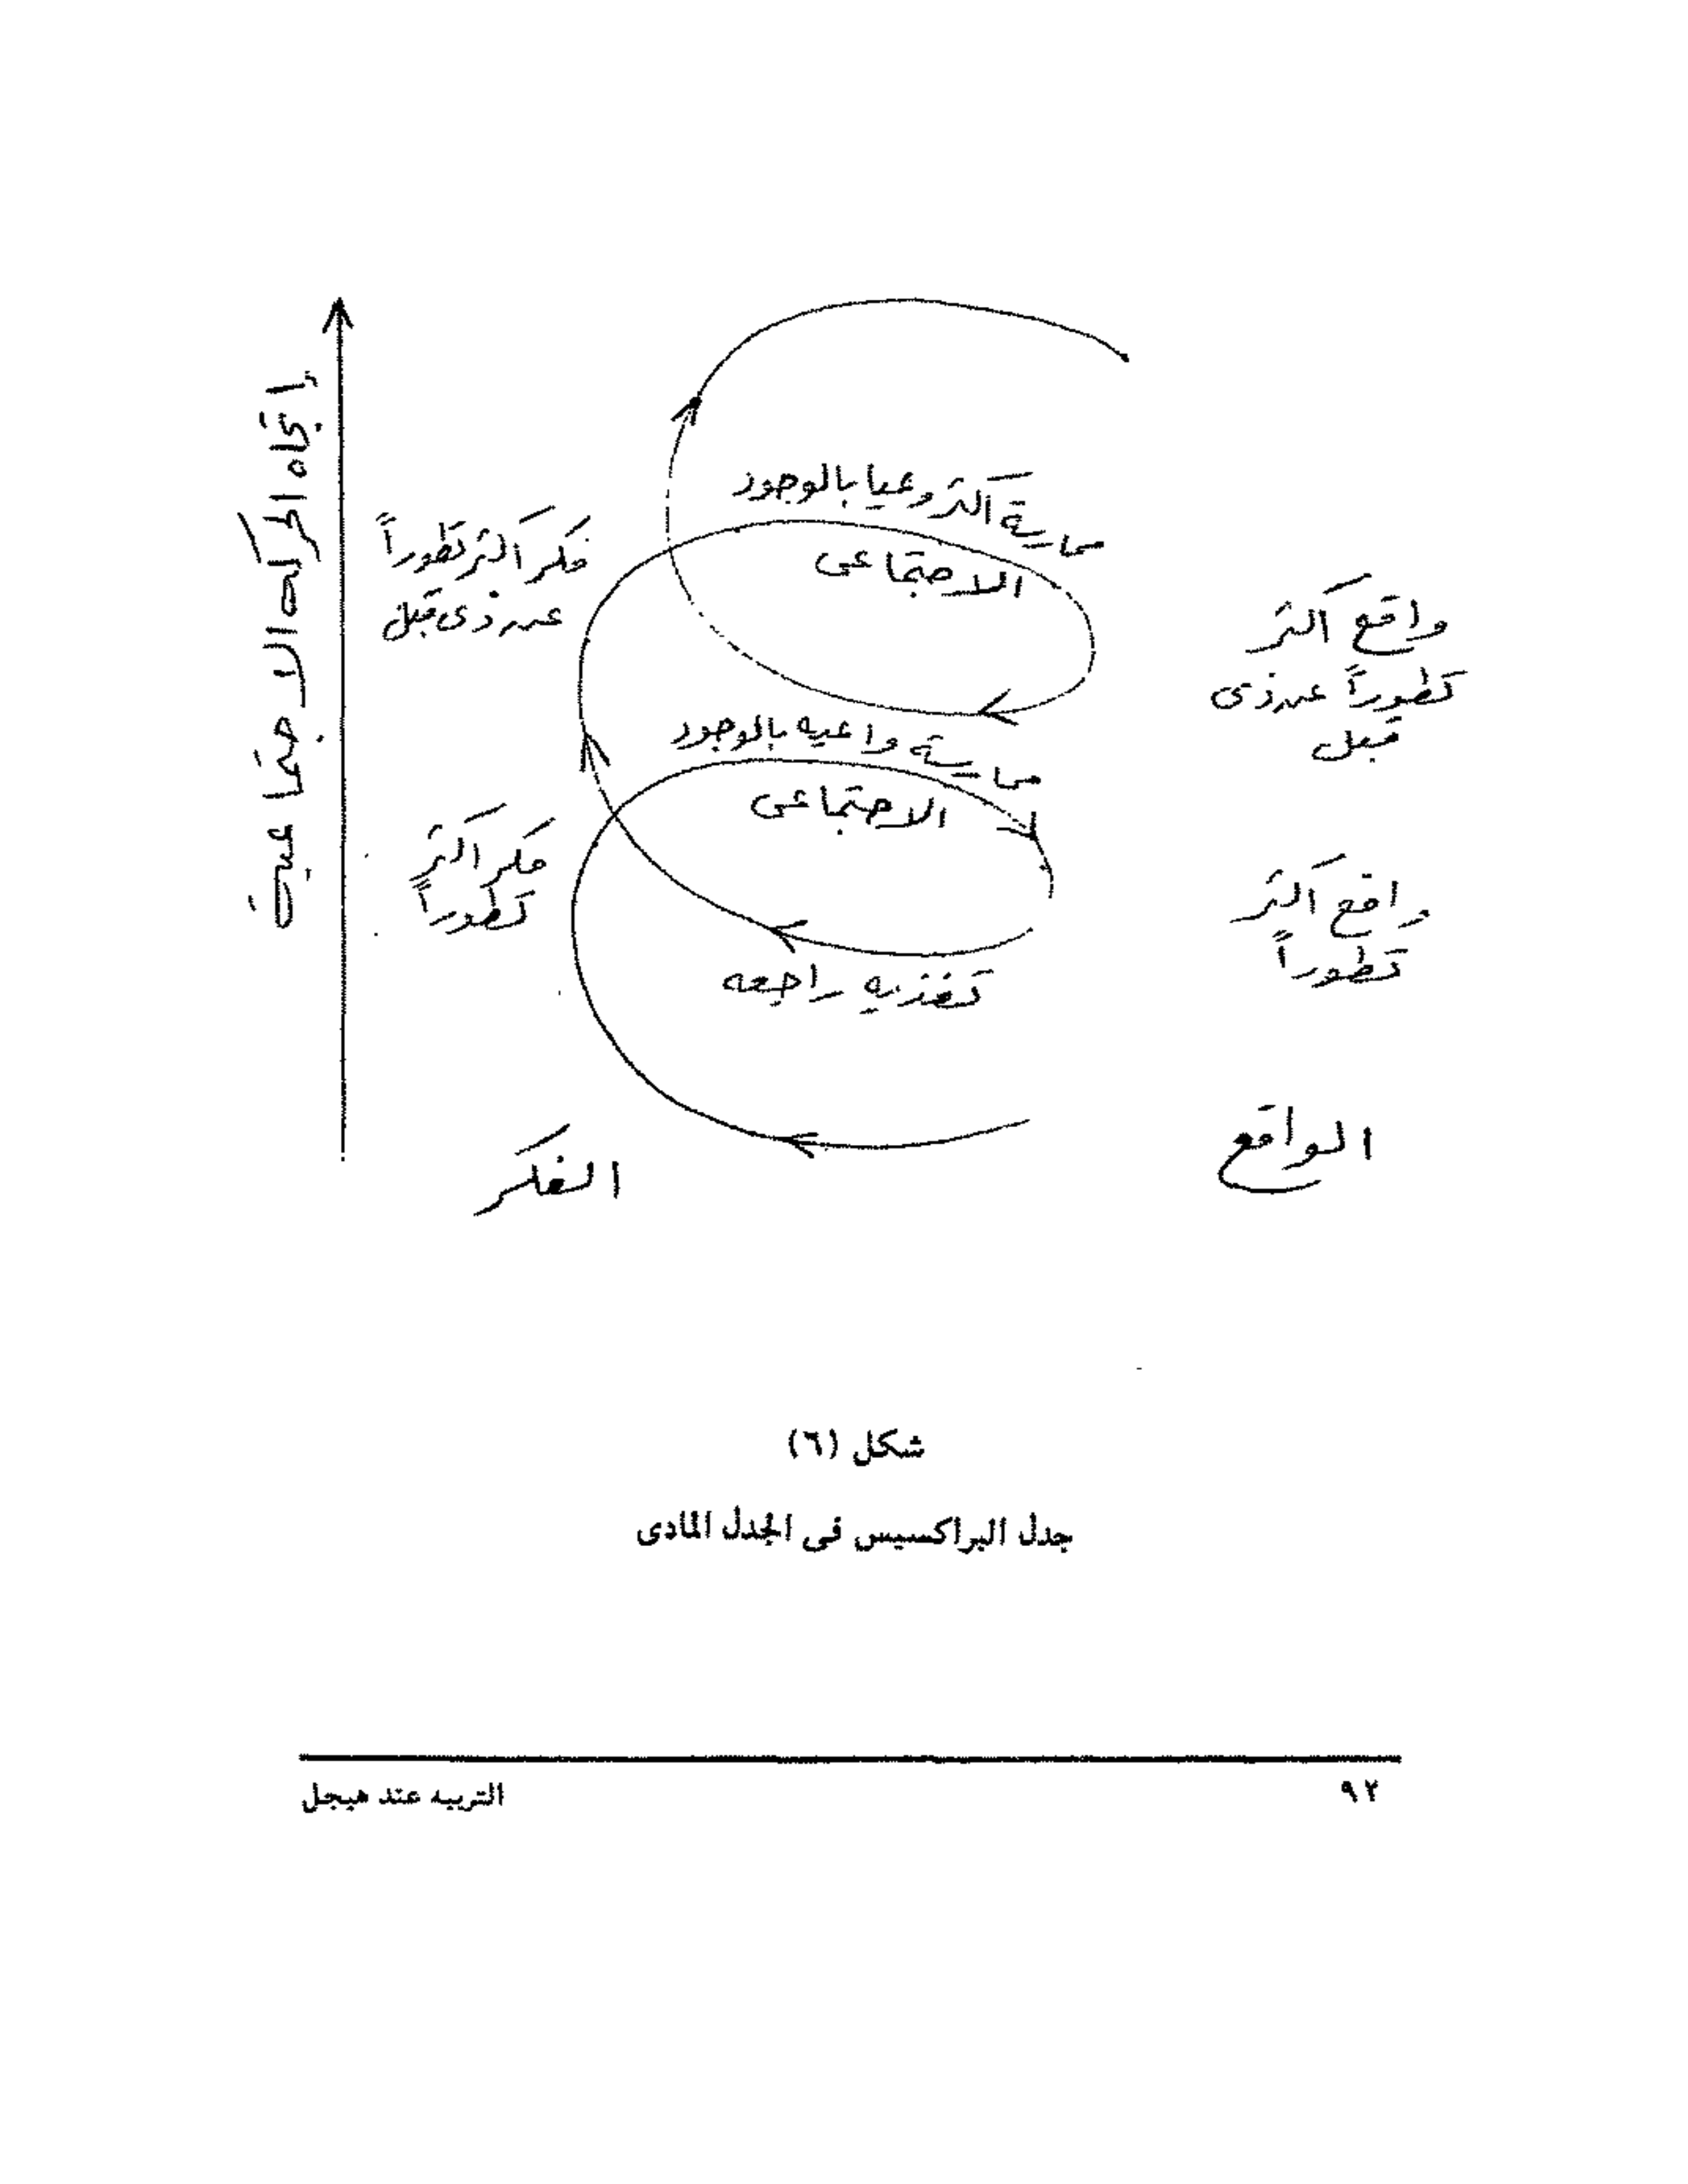 اتجاه الحركه الاجتماعية
ممارسة أكثر وعيا بالوجود
الاجتماعى
فكر أكثر تطوراً
عن ذى قبل
واقع أكثر
تطوراً عن ذى
قبل
ممارسة واعيه بالوجود
الاجتماعى
فكر أكثر
تطوراً
واقع أكثر
تطوراً
تغذيه راجعه
الواقع
الفكر
شكل (٦)
جدل البراكسيس فى الجدل المادى
٩٢
التربيه عند هيجل